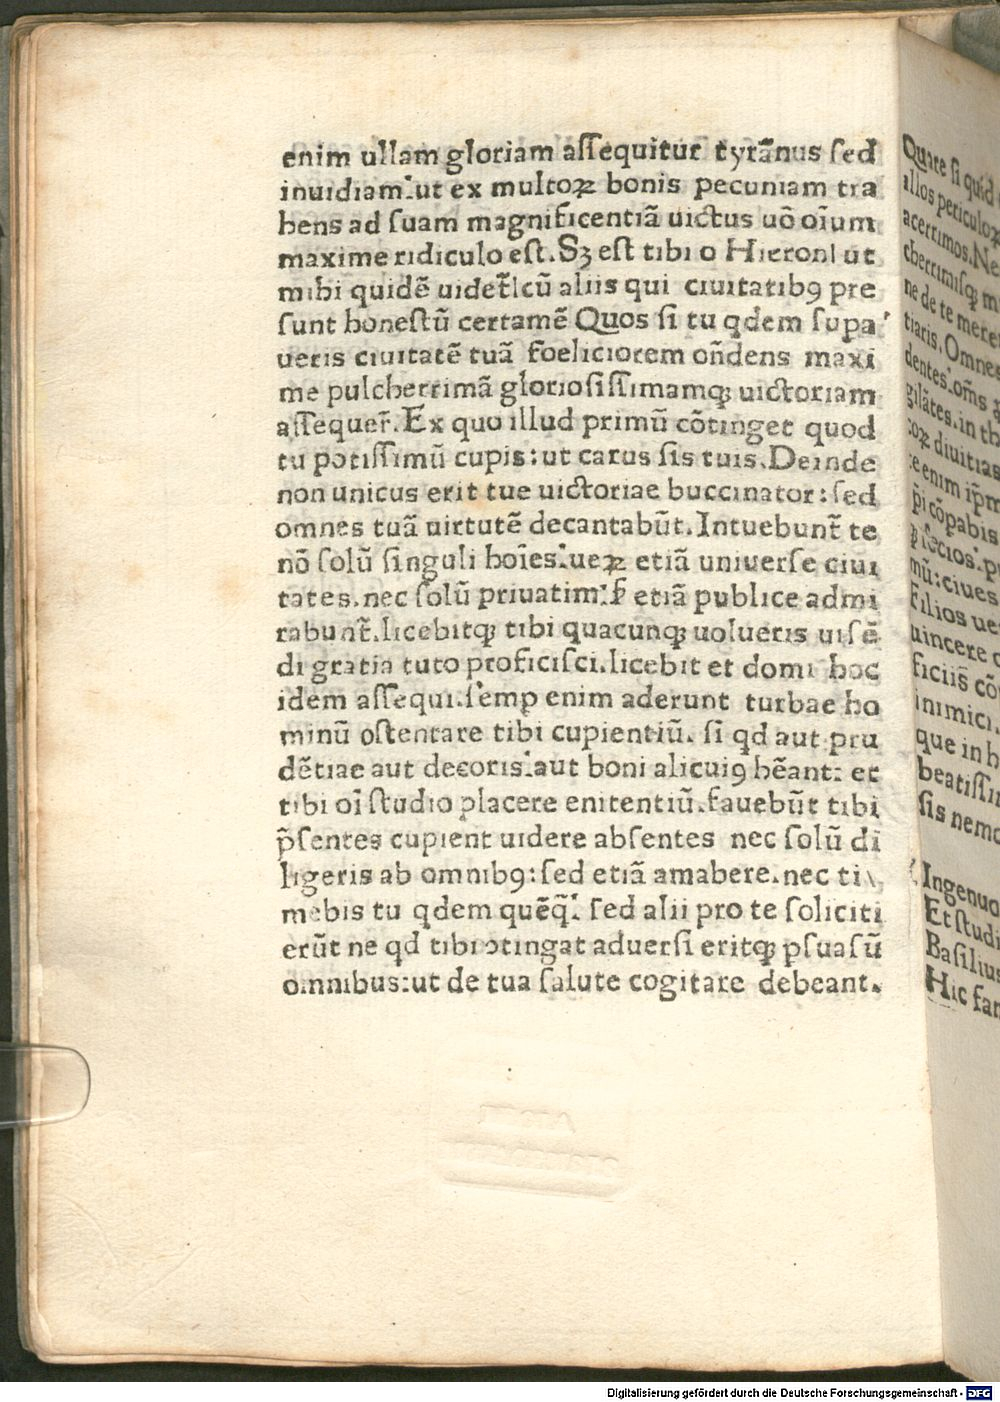 enim ullam gloriam aſſequitur tyrãnus ſed
inuidiam:ut ex multoꝝ bonis pecuniam tra
hens ad ſuam magnificentiã uictus uõ oĩum
maxime ridiculo eſt.Sꝫ eſt tibi o Hieron ut
mihi quidẽ uidet̃ cũ aliis qui ciuitatibꝯ pre
ſunt honeſtũ certamẽ Quos ſi tu qdem ſupa
ueris ciuitatẽ tuã foeliciorem oñdens maxi
me pulcherrimã glorioſiſſimamqꝫ uictoriam
aſſequer̃.Ex quo illud primũ cõtinget quod
tu potiſſimũ cupis:ut carus ſis tuis.Deinde
non unicus erit tue uictoriae buccinator:ſed
omnes tuã uirtutẽ decantabũt.Intuebunt̃ te
nõ ſolũ ſinguli hoĩes:ueꝝ etiã univerſe ciui
tates.nec ſolũ priuatim:ſ̃ etiã publice admi
rabunt̃.licebitqꝫ tibi quacunqꝫ uolueris uiſẽ
di gratia tuto proficiſci.licebit et domi hoc
idem aſſequi.ſemꝑ enim aderunt turbae ho
minũ oſtentare tibi cupientiũ. ſi qd aut pru
dẽtiae aut decoris:aut boni alicuiꝯ hẽant: et
tibi oĩ ſtudio placere enitentiũ.fauebũt tibi
p̃ſentes cupient uidere abſentes nec ſolũ di
ligeris ab omnibꝯ:ſed etiã amabere.nec ti
mebis tu qdem quẽq̃: ſed alii pro te ſoliciti
erũt ne qd tibi ↄtingat aduerſi eritqꝫ ꝑſuaſũ
omnibus:ut de tua ſalute cogitare debeant.
Quare ſi quid
illos periculoꝝ
acerrimos.Ne
cherrimiſqꝫ
ne de te
tiaris.Omnes
dentes:oẽs
gilãtes.in
diuitias
enim ip̃m
cõpabis
mũ:ciues
filios
uincere
ficiis
inimici.
que in
beatiſſi
ſis nemo
Ingenua
Et ſtudi
Baſilius
Hic fa
Digitalisierung gefördert durch die Deutsche Forschungsgemeinschaft - DFG